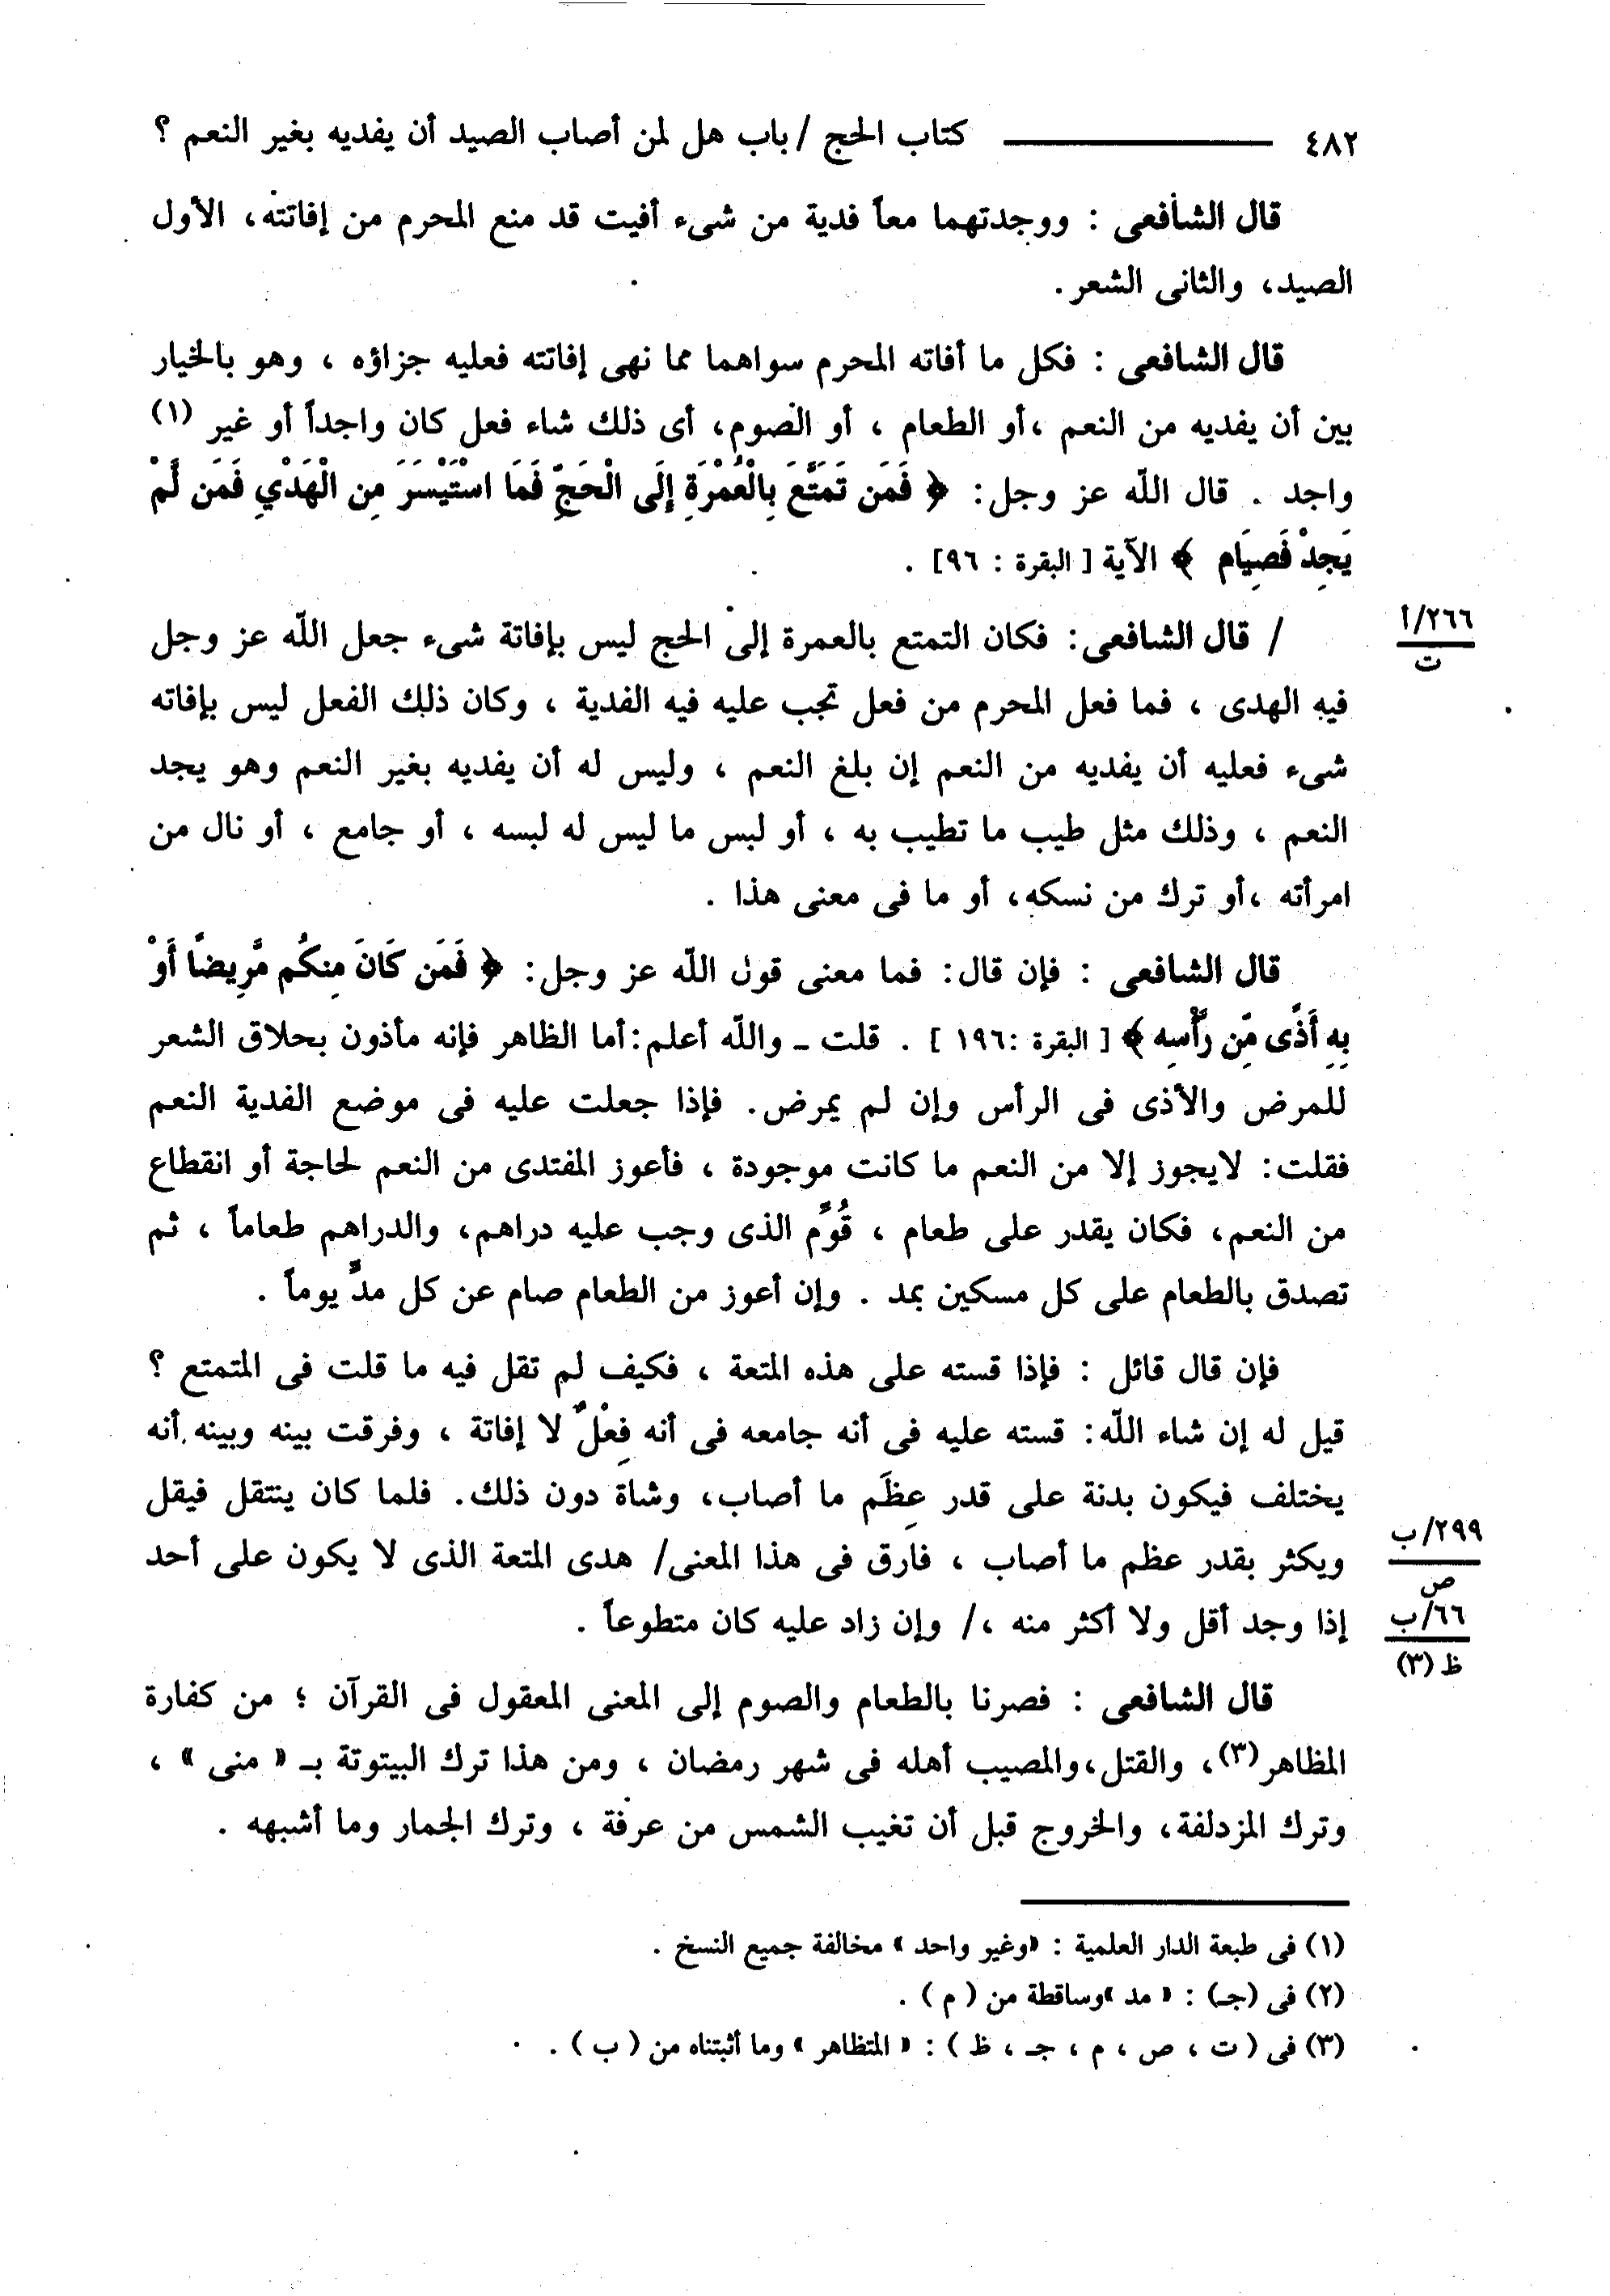 ٤٨٢ ــــــــ كتاب الحج / باب هل لمن أصاب الصيد أن يفديه بغير النعم ؟
قال الشافعى : ووجدتهما معاً فدية من شىء أفيت قد منع المحرم من إفاتته، الأول
الصيد، والثانى الشعر.
قال الشافعى : فكل ما أفاته المحرم سواهما مما نهى إفاتته فعليه جزاؤه ، وهو بالخيار
بين أن يفديه من النعم ،أو الطعام ، أو الصوم، أى ذلك شاء فعل كان واجداً أو غير (١)
واجد . قال الله عز وجل: ﴿ فَمَن تَمَتَّعَ بِالْعُمْرَةِ إِلَى الْحَجِّ فَمَا اسْتَيْسَرَ مِنَ الْهَدْيِ فَمَن لَّمْ
يَجِدْ فَصِيَام ﴾ الآية [ البقرة : ٩٦] .
/ قال الشافعى: فكان التمتع بالعمرة إلى الحج ليس بإفاتة شىء جعل الله عز وجل
٢٦٦/أ
ت
فيه الهدى ، فما فعل المحرم من فعل تجب عليه فيه الفدية ، وكان ذلك الفعل ليس بإفاته
شىء فعليه أن يفديه من النعم إن بلغ النعم ، وليس له أن يفديه بغير النعم وهو يجد
النعم ، وذلك مثل طيب ما تطيب به ، أو لبس ما ليس له لبسه ، أو جامع ، أو نال من
امرأته ،أو ترك من نسكه، أو ما فى معنى هذا .
قال الشافعى : فإن قال: فما معنى قول الله عز وجل: ﴿ فَمَن كَانَ مِنكُم مَّرِيضًا أَوْ
بِهِ أَذًى مِّن رَّأْسِهِ ﴾ [ البقرة :١٩٦ ] . قلت ـ والله أعلم:أما الظاهر فإنه مأذون بحلاق الشعر
للمرض والأذى فى الرأس وإن لم يمرض. فإذا جعلت عليه فى موضع الفدية النعم
فقلت: لايجوز إلا من النعم ما كانت موجودة ، فأعوز المفتدى من النعم لحاجة أو انقطاع
من النعم، فكان يقدر على طعام ، قُوِّم الذى وجب عليه دراهم، والدراهم طعاماً ، ثم
تصدق بالطعام على كل مسكين بمد . وإن أعوز من الطعام صام عن كل مدٍّ يوماً .
فإن قال قائل : فإذا قسته على هذه المتعة ، فكيف لم تقل فيه ما قلت فى المتمتع ؟
قيل له إن شاء الله: قسته عليه فى أنه جامعه فى أنه فِعْلٌ لا إفاتة ، وفرقت بينه وبينه أنه
يختلف فيكون بدنة على قدر عِظَم ما أصاب، وشاة دون ذلك. فلما كان ينتقل فيقل
ويكثر بقدر عظم ما أصاب ، فارق فى هذا المعنى/ هدى المتعة الذى لا يكون على أحد
٢٩٩/ب
ص
إذا وجد أقل ولا أكثر منه ،/ وإن زاد عليه كان متطوعاً .
٦٦/ب
ظ (٣)
قال الشافعى : فصرنا بالطعام والصوم إلى المعنى المعقول فى القرآن ؛ من كفارة
المظاهر(٣)، والقتل،والمصيب أهله فى شهر رمضان ، ومن هذا ترك البيتوتة بـ « منى » ،
وترك المزدلفة، والخروج قبل أن تغيب الشمس من عرفة ، وترك الجمار وما أشبهه .
(١) فى طبعة الدار العلمية : «وغير واحد » مخالفة جميع النسخ .
(٢) فى (جـ) : « مد »وساقطة من ( م ) .
(٣) فى ( ت ، ص ، م ، جـ ، ظ ) : « المتظاهر » وما أثبتناه من ( ب ) .